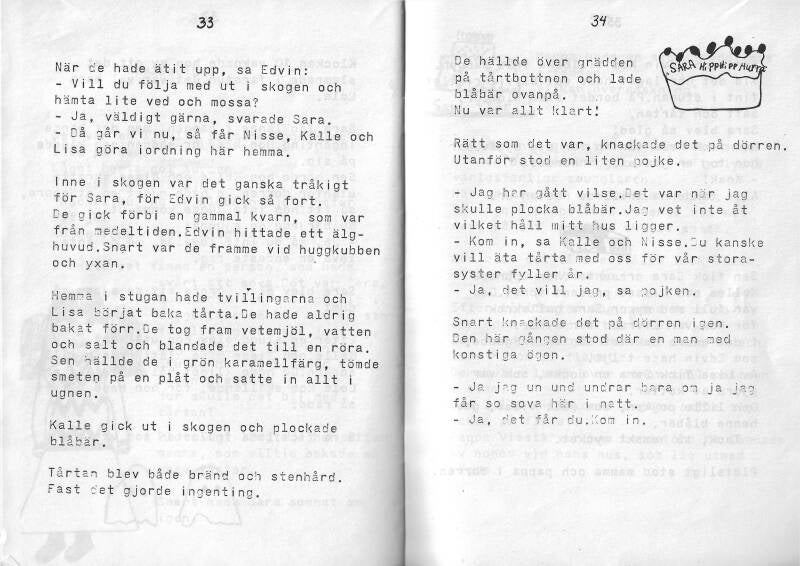 33
När de hade ätit upp, sa Edvin:
- Vill du följa med ut i skogen och
hämta lite ved och mossa?
- Ja, väldigt gärna, svarade Sara.
- Då går vi nu, så får Nisse, Kalle och
Lisa göra iordning här hemma.
Inne i skogen var det ganska tråkigt
för Sara, för Edvin gick så fort.
De gick förbi en gammal kvarn, som var
från medeltiden.Edvin hittade ett älg-
huvud.Snart var de framme vid huggkubben
och yxan.
Hemma i stugan hade tvillingarna och
Lisa börjat baka tårta.De hade aldrig
bakat förr.De tog fram vetemjöl, vatten
och salt och blandade det till en röra.
Sen hällde de i grön karamellfärg, tömde
smeten på en plåt och satte in allt i
ugnen.
Kalle gick ut i skogen och plockade
blåbär.
Tårtan blev både bränd och stenhård.
Fast det gjorde ingenting.
34
De hällde över grädden
på tårtbottnen och lade
blåbär ovanpå.
Nu var allt klart!
SARA HIPPHIPPHURRA
Rätt som det var, knackade det på dörren.
Utanför stod en liten pojke.
- Jag har gått vilse.Det var när jag
skulle plocka blåbär.Jag vet inte åt
vilket håll mitt hus ligger.
- Kom in, sa Kalle och Nisse.Du kanske
vill äta tårta med oss för vår stora-
syster fyller år.
- Ja, det vill jag, sa pojken.
Snart knackade det på dörren igen.
Den här gången stod där en man med
konstiga ögon.
- Ja jag un und undrar bara om ja jag
får so sova här i natt.
- Ja, det får du.Kom in.